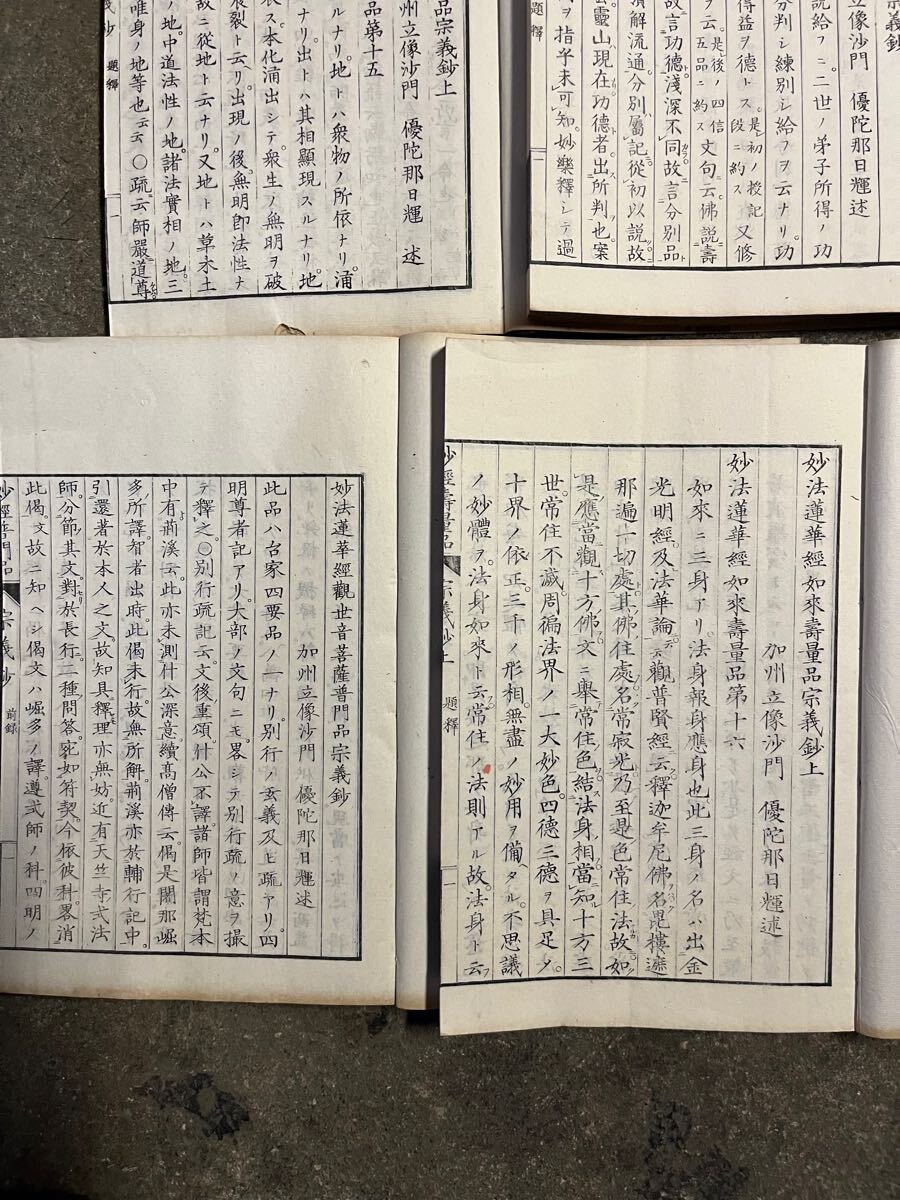 宗義鈔
立像沙門　優陀那日輝述
説給フニ二世ノ弟子所得ノ功
分判シ練別シ給フヲ云ナリ功
得益ヲ德トス是初ノ授記段ニ約ス又修
ヲ云是後ノ四信五品ニ約ス文句云佛説壽
故言功德淺深不同故言分別品
領解流通分別屬記從初以説故
云靈山現在功德者出所判也案
ヲ指乎未可知妙樂釋シテ過
題釋
一
品宗義鈔上
州立像沙門　優陀那日輝　述
品第十五
ルナリ地トハ衆物ノ所依ナリ涌
ナリ出トハ其相顯現スルナリ地
衣ス本化涌出シテ衆生ノ無明ヲ破
裂ト云リ出現ノ後無明即法性ナ
故ニ從地ト云ナリ又地トハ草木土
ノ地中道法性ノ地諸法實相ノ地三
唯身ノ地等也云云〇疏云師嚴道尊
題釋
一
妙法蓮華經如來壽量品宗義鈔上
加州立像沙門　優陀那日輝述
妙法蓮華經如來壽量品第十六
如來ニ三身アリ法身報身應身也此三身ノ名ハ出金
光明經及法華論云觀普賢經云釋迦牟尼佛名毘樓遮
那遍一切處其佛住處名常寂光乃至是色常住法故如
是應當觀十方佛文ニ擧常住色結法身相當知十方三
世常住不滅周徧法界ノ一大妙色四德三德ヲ具足タ
十界ノ依正三千ノ形相無盡ノ妙用ヲ備タル不思議
ノ妙體ヲ法身如來ト云常住ノ法則アル故法身ト云フ
妙經壽量品　宗義鈔上　題釋　一
妙法蓮華經觀世音菩薩普門品宗義鈔
加州立像沙門　優陀那日輝述
此品ハ台家四要品ノ一ナリ別行ノ玄義及ヒ疏アリ四
明尊者記アリ大部ノ文句ニモ畧シテ別行疏ノ意ヲ撮
テ釋之〇別行疏記云文後重頌什公不譯諸師皆謂梵本
中有荊溪云此亦未測什公深意續高僧傳云偈是闍那崛
多所譯智者出時此偈未行故無所解荊溪亦於輔行記中
引還著於本人之文故知具釋理亦無妨近有天竺寺式法
師分節其文對於長行二種問答宛如符契今依彼科畧消
此偈文故ニ知ヘシ偈文ハ崛多ノ譯遵式師ノ科四明ノ
妙經普門品　宗義鈔　前録　一